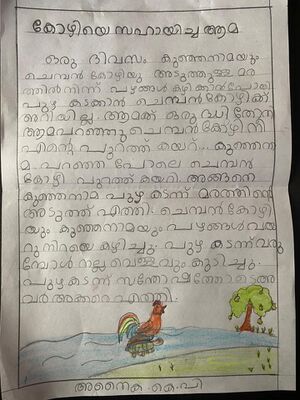 കോഴിയെ സഹായിച്ച ആമ
ഒരു ദിവസം കുഞ്ഞനാമയും
ചെമ്പൻ കോഴിയു അടുത്തുള്ള മര
ത്തിൽ നിന്ന് പഴങ്ങൾ കഴിക്കാൻപോയി
പുഴ കടക്കാൻ ചെമ്പൻകോഴിക്ക്
അറിയില്ല. ആമക്ക് ഒരു ബുദ്ധി തോന്നി
ആമപറഞ്ഞു ചെമ്പൻ കോഴി നീ
എന്റെ പുറത്ത് കയറ്... കുഞ്ഞനാ
മ പറഞ്ഞ പോലെ ചെമ്പൻ
കോഴി പുറത്ത് കയറി. അങ്ങനെ
കുഞ്ഞനാമ പുഴ കടന്ന് മരത്തിന്റെ
അടുത്ത് എത്തി. ചെമ്പൻ കോഴി
യും കുഞ്ഞനാമയും പഴങ്ങൾ വയ
റുനിറയെ കഴിച്ചു. പുഴ കടന്ന്വരു
മ്പോൾ നല്ല വെള്ളവും കുടിച്ചു.
പുഴകടന്ന് സന്തോഷത്തോടെ അ
വർ അക്കരെ എത്തി.
അനൈക .കെ.ഡി